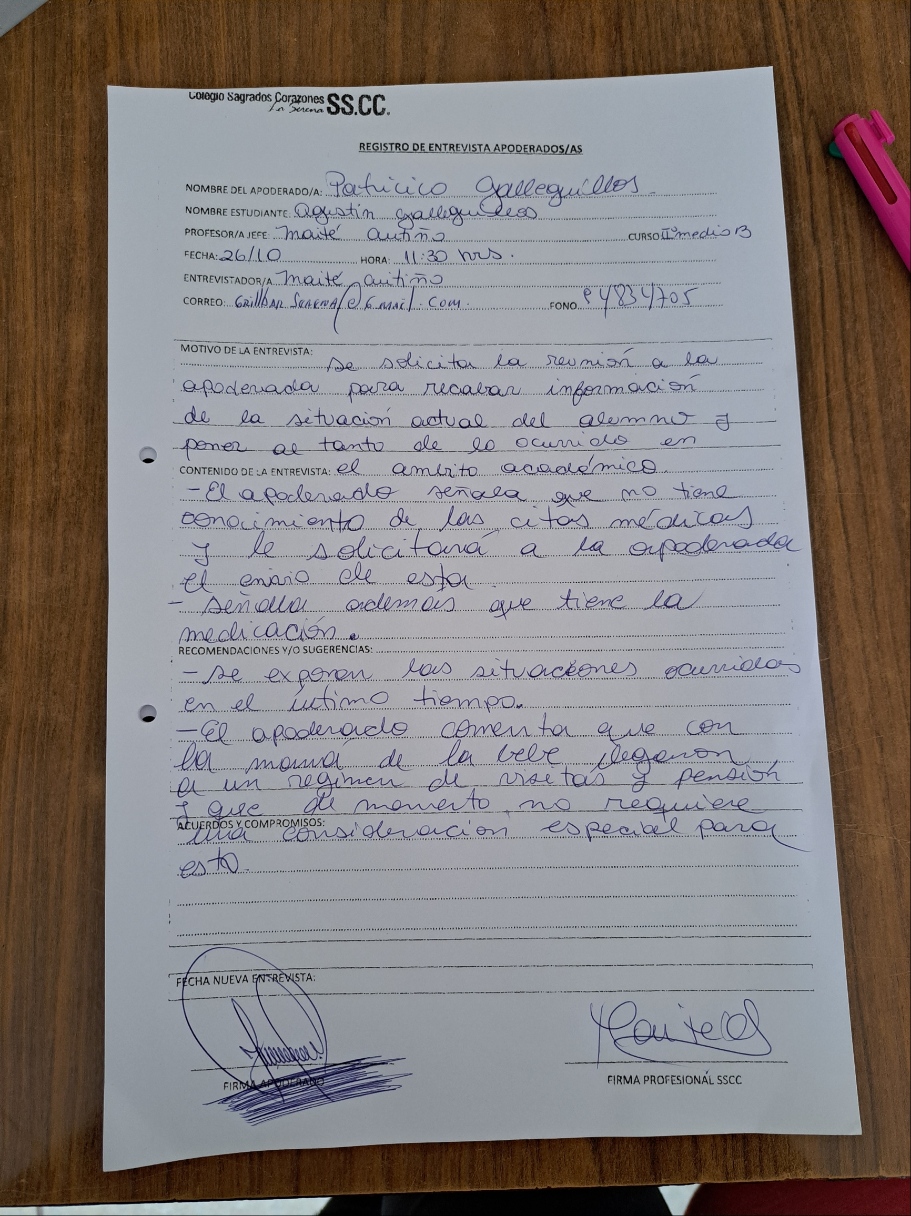 Colegio Sagrados Corazones SS.CC.
La Serena
REGISTRO DE ENTREVISTA APODERADOS/AS
NOMBRE DEL APODERADO/A: Patricico Galleguillos
NOMBRE ESTUDIANTE: Agustín Galleguillos
PROFESOR/A JEFE: Maité Autiño CURSO IIº medio B
FECHA: 26/10 HORA: 11:30 hrs.
ENTREVISTADOR/A Maité Autiño
CORREO: @Gmail.com FONO 94834705
MOTIVO DE LA ENTREVISTA: Se solicita la reunión a la
apoderada para recabar información
de la situación actual del alumno y
poner al tanto de lo ocurrido en
CONTENIDO DE LA ENTREVISTA: el ambito académico.
- El apoderado señala que no tiene
conocimiento de las citas médicas
y le solicitará a la apoderada
el envio de esta.
- Señala ademas que tiene la
medicación.
RECOMENDACIONES Y/O SUGERENCIAS:
- Se exponen las situaciones ocurridas
en el último tiempo.
- El apoderado comenta que con
la mamá de la bebe llegaron
a un regimen de visitas y pensión
y que de momento no requiere
ACUERDOS Y COMPROMISOS:
una consideración especial para
esto.
FECHA NUEVA ENTREVISTA:
FIRMA APODERADO
FIRMA PROFESIONAL SSCC